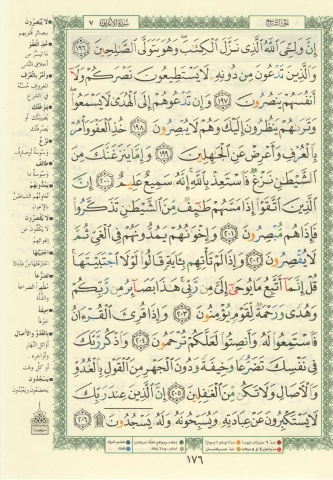 الجزء التاسع
سورة الأعراف ٧
إِنَّ وَلِـِّۧيَ ٱللَّهُ ٱلَّذِي نَزَّلَ ٱلۡكِتَٰبَۖ وَهُوَ يَتَوَلَّى ٱلصَّٰلِحِينَ ١٩٦
وَٱلَّذِينَ تَدۡعُونَ مِن دُونِهِۦ لَا يَسۡتَطِيعُونَ نَصۡرَكُمۡ وَلَآ
أَنفُسَهُمۡ يَنصُرُونَ ١٩٧ وَإِن تَدۡعُوهُمۡ إِلَى ٱلۡهُدَىٰ لَا يَسۡمَعُواْۖ
وَتَرَىٰهُمۡ يَنظُرُونَ إِلَيۡكَ وَهُمۡ لَا يُبۡصِرُونَ ١٩٨ خُذِ ٱلۡعَفۡوَ وَأۡمُرۡ
بِٱلۡعُرۡفِ وَأَعۡرِضۡ عَنِ ٱلۡجَٰهِلِينَ ١٩٩ وَإِمَّا يَنزَغَنَّكَ مِنَ
ٱلشَّيۡطَٰنِ نَزۡغٞ فَٱسۡتَعِذۡ بِٱللَّهِۚ إِنَّهُۥ سَمِيعٌ عَلِيمٌ ٢٠٠ إِنَّ
ٱلَّذِينَ ٱتَّقَوۡاْ إِذَا مَسَّهُمۡ طَٰٓئِفٞ مِّنَ ٱلشَّيۡطَٰنِ تَذَكَّرُواْ
فَإِذَا هُم مُّبۡصِرُونَ ٢٠١ وَإِخۡوَٰنُهُمۡ يَمُدُّونَهُمۡ فِي ٱلۡغَيِّ ثُمَّ
لَا يُقۡصِرُونَ ٢٠٢ وَإِذَا لَمۡ تَأۡتِهِم بِـَٔايَةٖ قَالُواْ لَوۡلَا ٱجۡتَبَيۡتَهَاۚ
قُلۡ إِنَّمَآ أَتَّبِعُ مَا يُوحَىٰٓ إِلَيَّ مِن رَّبِّيۚ هَٰذَا بَصَآئِرُ مِن رَّبِّكُمۡ
وَهُدٗى وَرَحۡمَةٞ لِّقَوۡمٖ يُؤۡمِنُونَ ٢٠٣ وَإِذَا قُرِئَ ٱلۡقُرۡءَانُ
فَٱسۡتَمِعُواْ لَهُۥ وَأَنصِتُواْ لَعَلَّكُمۡ تُرۡحَمُونَ ٢٠٤ وَٱذۡكُر رَّبَّكَ
فِي نَفۡسِكَ تَضَرُّعٗا وَخِيفَةٗ وَدُونَ ٱلۡجَهۡرِ مِنَ ٱلۡقَوۡلِ بِٱلۡغُدُوِّ
وَٱلۡأٓصَالِ وَلَا تَكُن مِّنَ ٱلۡغَٰفِلِينَ ٢٠٥ إِنَّ ٱلَّذِينَ عِندَ رَبِّكَ
لَا يَسۡتَكۡبِرُونَ عَنۡ عِبَادَتِهِۦ وَيُسَبِّحُونَهُۥ وَلَهُۥ يَسۡجُدُونَۤ ۩ ٢٠٦
١٧٦